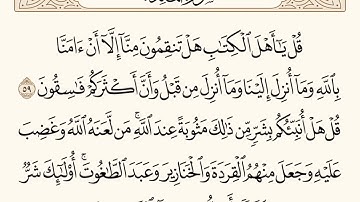 قُلْ يَٰٓأَهْلَ ٱلْكِتَٰبِ هَلْ تَنقِمُونَ مِنَّآ إِلَّآ أَنْ ءَامَنَّا
بِٱللَّهِ وَمَآ أُنزِلَ إِلَيْنَا وَمَآ أُنزِلَ مِن قَبْلُ وَأَنَّ أَكْثَرَكُمْ فَٰسِقُونَ ٥٩
قُلْ هَلْ أُنَبِّئُكُم بِشَرٍّ مِّن ذَٰلِكَ مَثُوبَةً عِندَ ٱللَّهِ ۚ مَن لَّعَنَهُ ٱللَّهُ وَغَضِبَ
عَلَيْهِ وَجَعَلَ مِنْهُمُ ٱلْقِرَدَةَ وَٱلْخَنَازِيرَ وَعَبَدَ ٱلطَّٰغُوتَ ۚ أُو۟لَٰٓئِكَ شَرٌّ